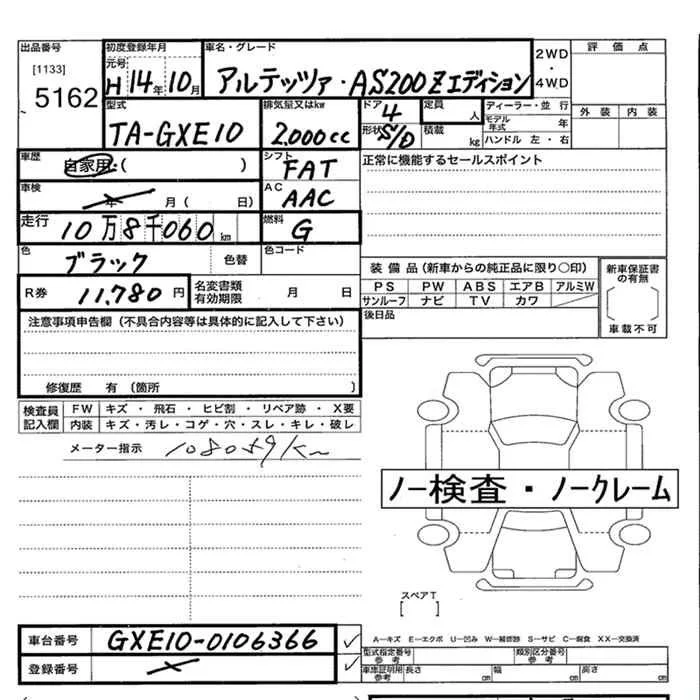 出品番号 初度登録年月 車名・グレード 2WD 評価点
[1133] 元号 ・
5162 H 14年 10月 アルテッツァ・AS200 Zエディション 4WD
型式 排気量又はkw ドア 4 定員 人 ディーラー・並行 外装 内装
モデル年式 年
TA-GXE10 2,000cc 形状 S/D 積載 kg ハンドル 左・右
車歴 自家用・( ) シフト FAT 正常に機能するセールスポイント
車検 年 月( 日) AC AAC
走行 10万8千060km 燃料 G
色 ブラック 色替 色コード
装備品(新車からの純正品に限り○印) 新車保証書の有無
R券 11,780円 名変書類有効期限 月 日 PS PW ABS エアB アルミW
サンルーフ ナビ TV カワ 車載不可
注意事項申告欄(不具合内容等は具体的に記入して下さい) 後日品
修復歴 有 (箇所 )
検査員記入欄 FW キズ・飛石・ヒビ割・リペア跡・X要
内装 キズ・汚レ・コゲ・穴・スレ・キレ・破レ
メーター指示 108059km
ノー検査・ノークレーム
スペアT
[ ]
車台番号 GXE10-0106366 ✓
A―キズ E―エクボ U―凹み W―補修跡 S―サビ C―腐食 XX―交換済
型式指定番号参考 類別区分番号参考
登録番号 ✓ 車庫証明用参考 長さ cm 幅 cm 高さ cm